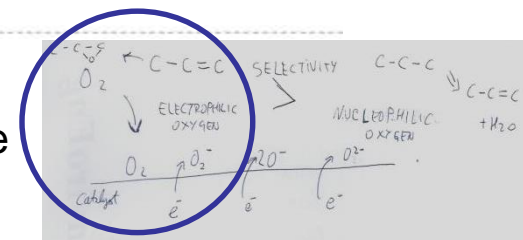 C-C-C
O
O2 ← C-C=C SELECTIVITY C-C-C
ELECTROPHILIC OXYGEN > NUCLEOPHILIC OXYGEN C-C=C +H2O
e O2 O2⁻ 2O⁻ O²⁻
Catalyst e⁻ e⁻ e⁻